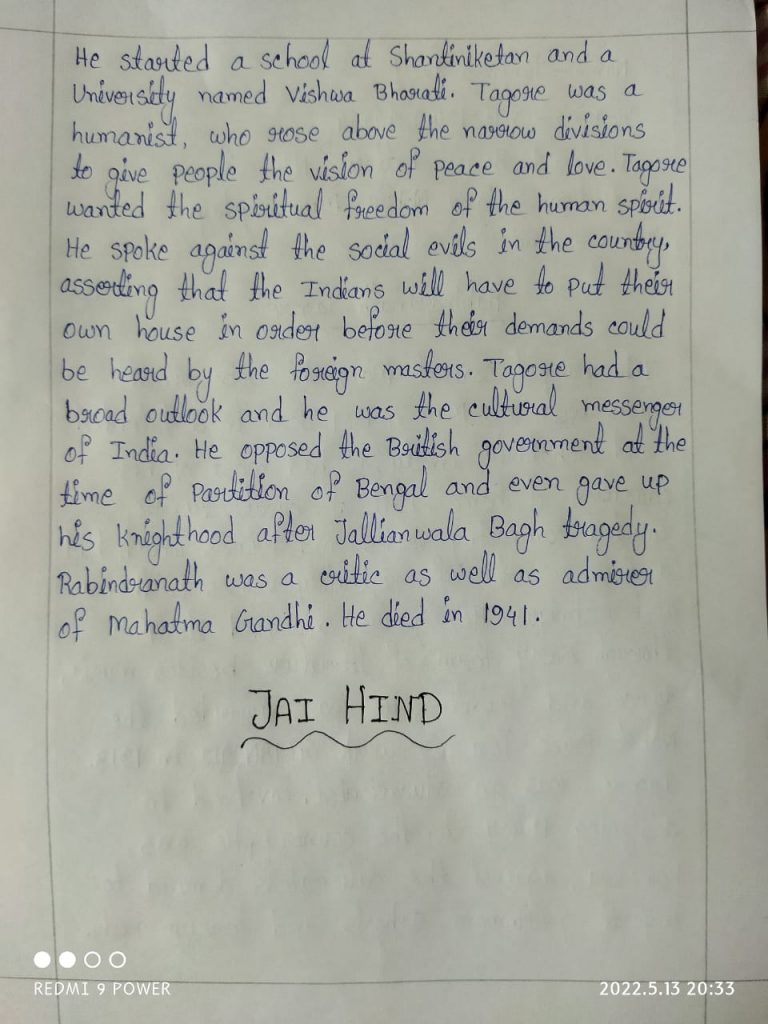 He started a school at Shantiniketan and a
University named Vishwa Bharati. Tagore was a
humanist, who rose above the narrow divisions
to give people the vision of peace and love. Tagore
wanted the spiritual freedom of the human spirit.
He spoke against the social evils in the country,
asserting that the Indians will have to put their
own house in order before their demands could
be heard by the foreign masters. Tagore had a
broad outlook and he was the cultural messenger
of India. He opposed the British government at the
time of Partition of Bengal and even gave up
his knighthood after Jallianwala Bagh tragedy.
Rabindranath was a critic as well as admirer
of Mahatma Gandhi. He died in 1941.
JAI HIND
REDMI 9 POWER
2022.5.13 20:33